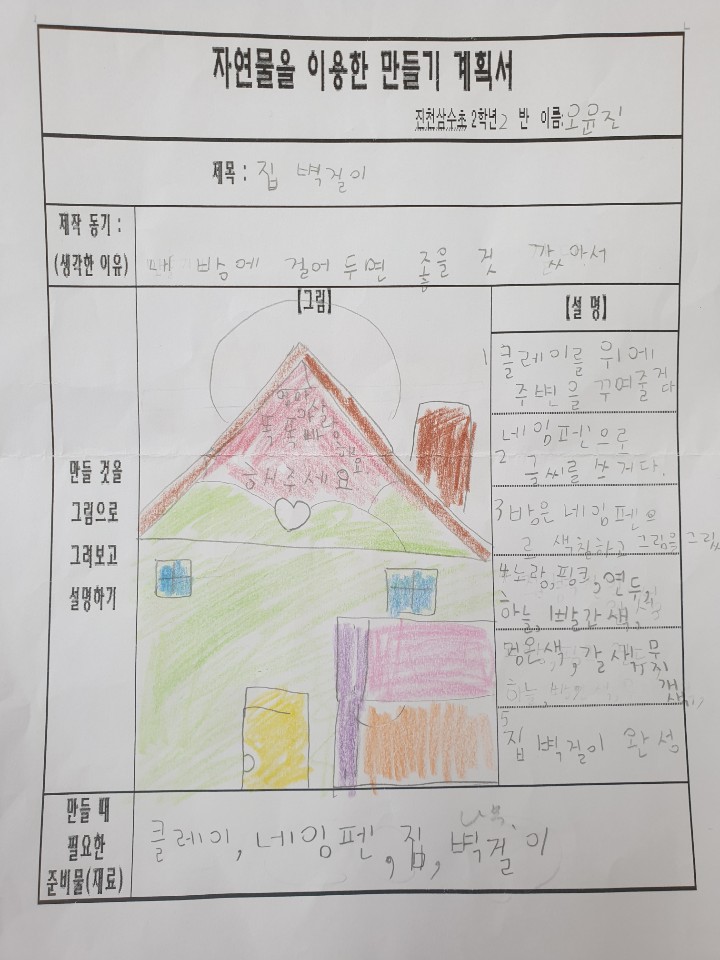 자연물을 이용한 만들기 계획서
진천삼수초 2학년 2 반 이름: 오윤진
제목 : 집 벽걸이
제작 동기 :
(생각한 이유)
내 방에 걸어 두면 좋을 것 깠아서
[그림]
[설 명]
만들 것을
그림으로
그려보고
설명하기
똑똑
해주세요
1 클레이를 위에
주변을 꾸며줄거다
네임펜으로
2 글씨를 쓰거다.
3 방은 네임펜으
로 색칠하고 그림을
4 노랑, 핑크, 연두
하늘, 빨간색,
검은색, 갈색, 무지개
5
집 벽걸이 완성
만들 때
필요한
준비물(재료)
클레이, 네임펜, 집, 벽걸이